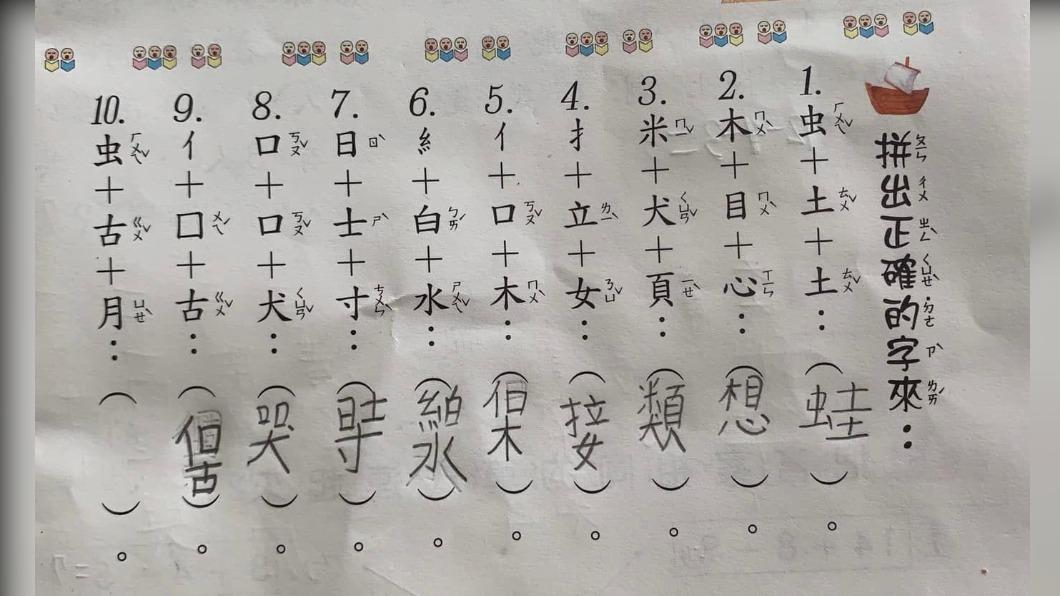 拼ㄆㄧㄣ出ㄔㄨ正ㄓㄥˋ確ㄑㄩㄝˋ的˙ㄉㄜ字ㄗˋ來ㄌㄞˊ：
1.虫ㄏㄨㄟˇ＋土ㄊㄨˇ＋土ㄊㄨˇ：（蛙）。
2.木ㄇㄨˋ＋目ㄇㄨˋ＋心ㄒㄧㄣ：（想）。
3.米ㄇㄧˇ＋犬ㄑㄩㄢˇ＋頁ㄧㄝˋ：（類）。
4.扌＋立ㄌㄧˋ＋女ㄋㄩˇ：（接）。
5.亻＋口ㄎㄡˇ＋木ㄇㄨˋ：（保）。
6.糹＋白ㄅㄞˊ＋水ㄕㄨㄟˇ：（線）。
7.日ㄖˋ＋士ㄕˋ＋寸ㄘㄨㄣˋ：（時）。
8.口ㄎㄡˇ＋口ㄎㄡˇ＋犬ㄑㄩㄢˇ：（哭）。
9.亻＋囗ㄨㄟˊ＋古ㄍㄨˇ：（個古）。
10.虫ㄏㄨㄟˇ＋古ㄍㄨˇ＋月ㄩㄝˋ：（ ）。